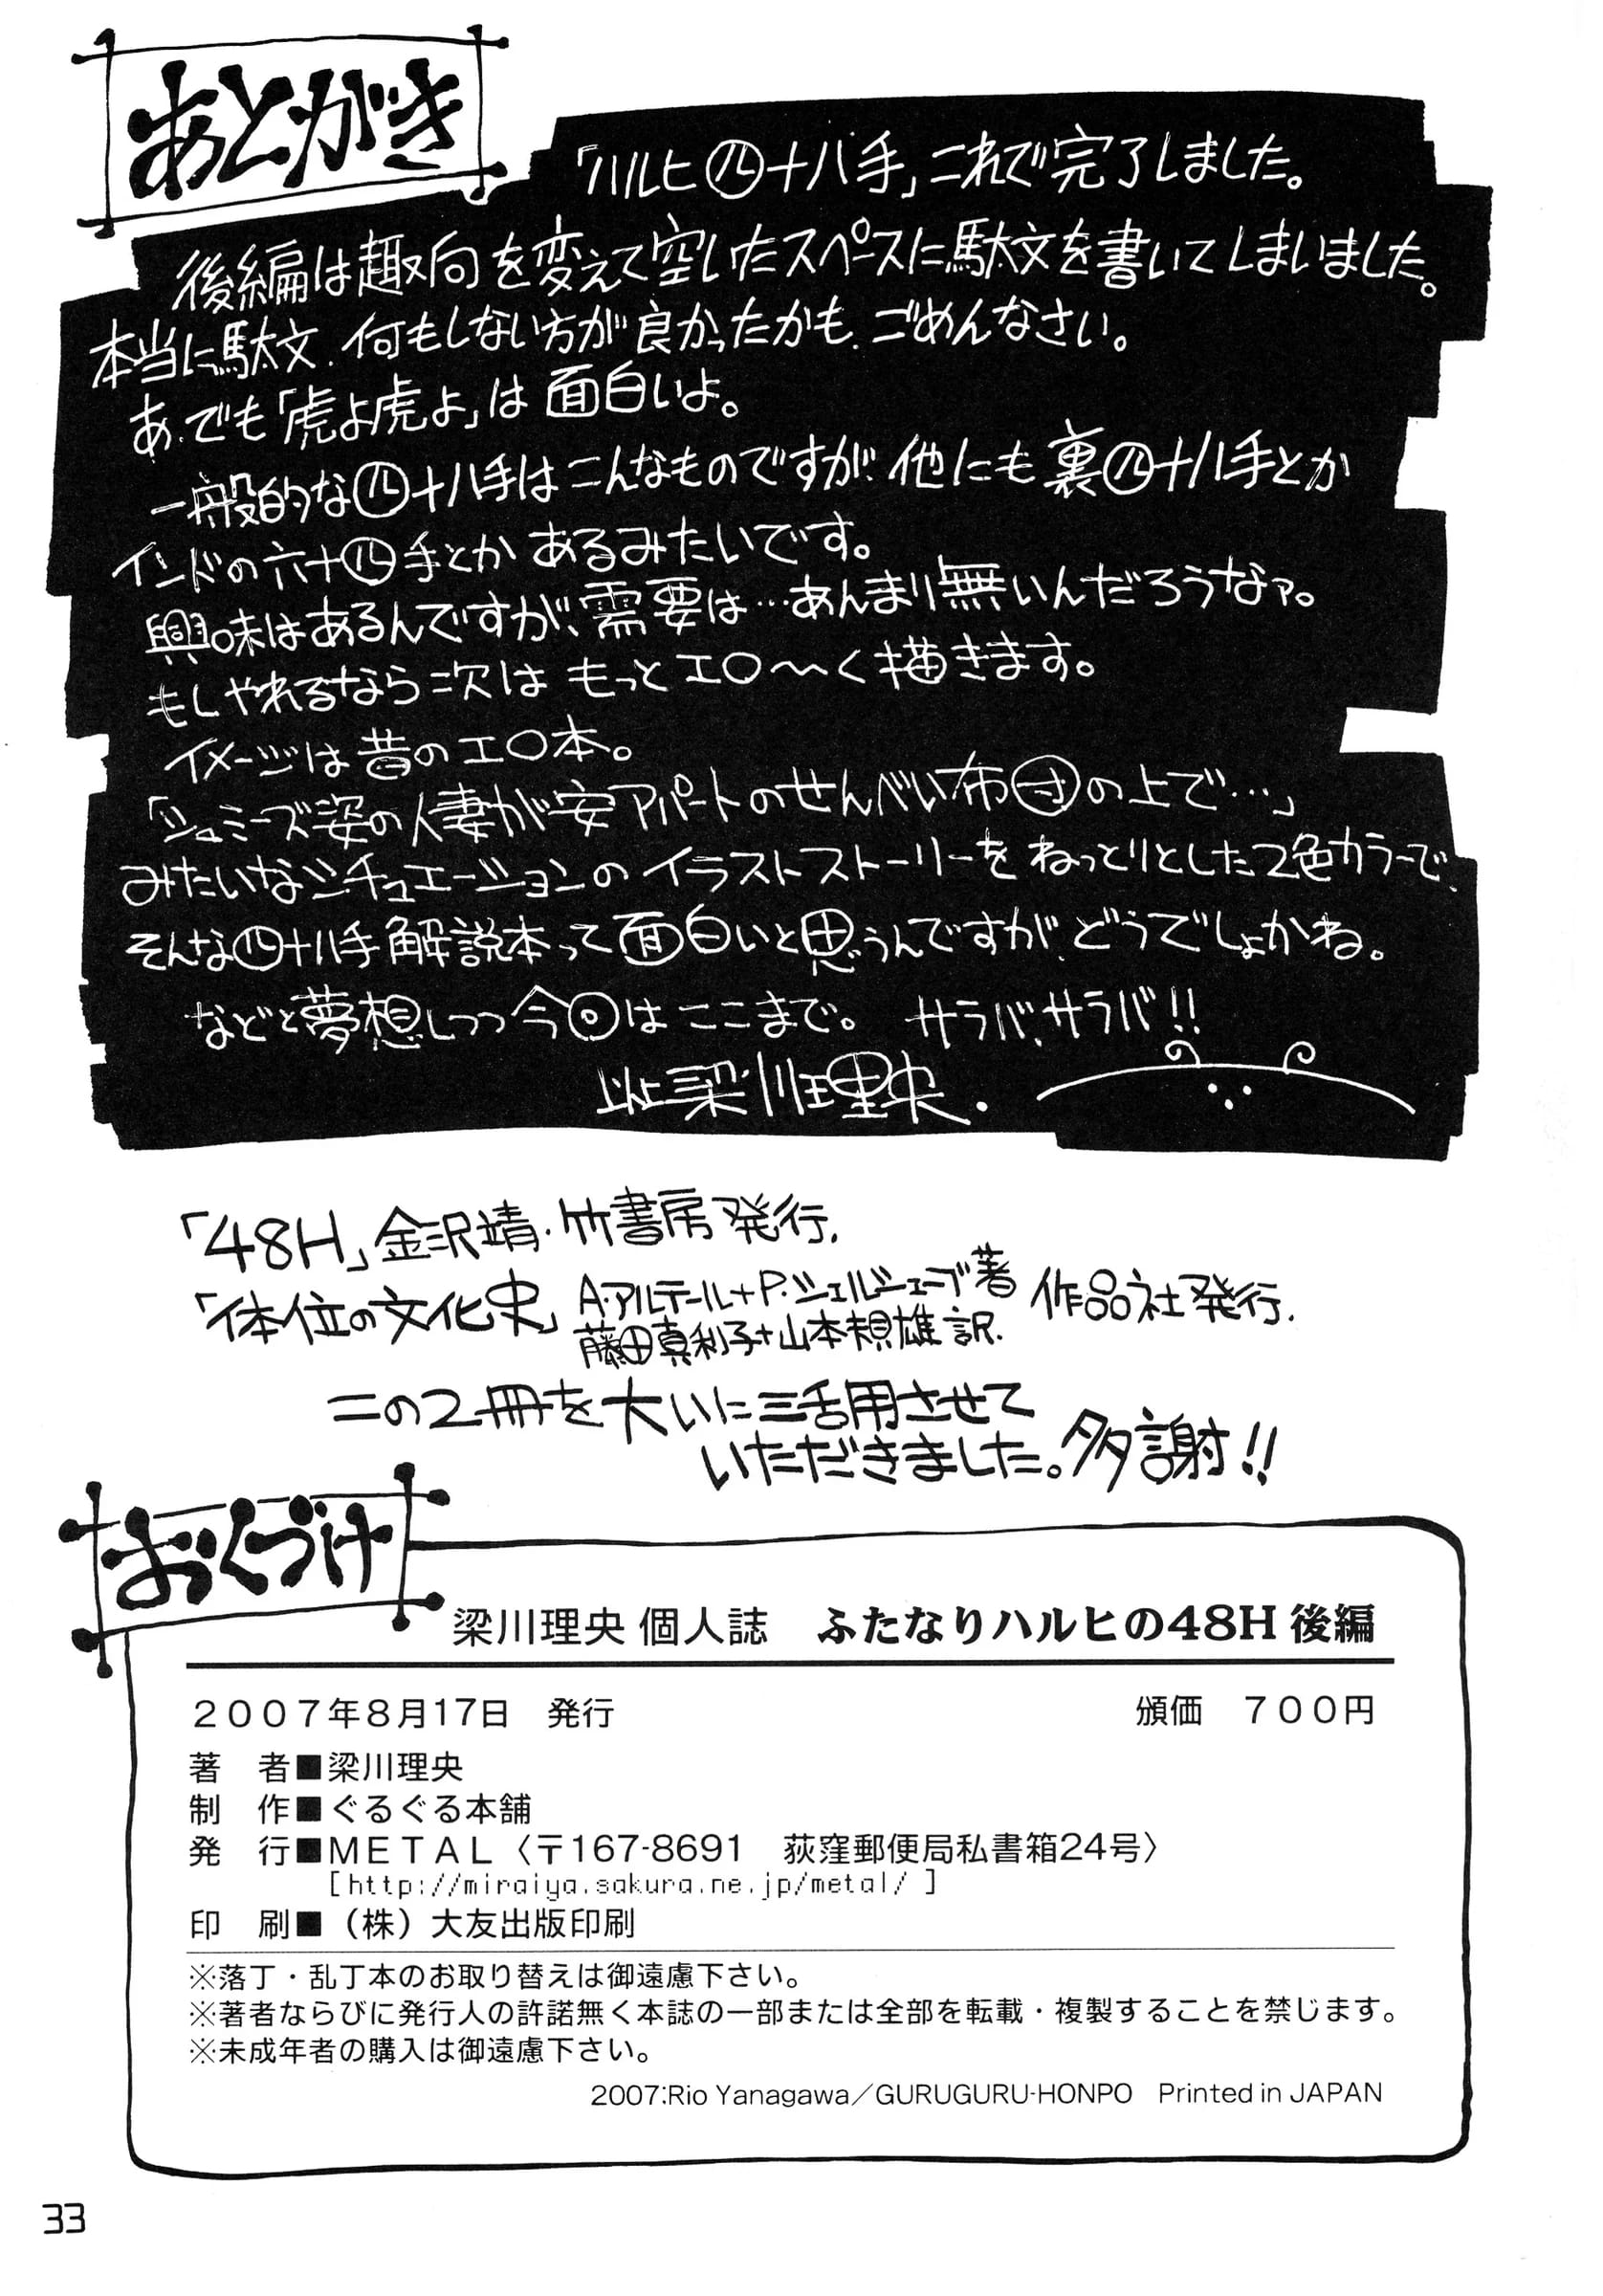 あとがき
「ハルヒ四十八手」これで完了しました。
後編は趣向を変えて空いたスペースに駄文を書いてしまいました。
本当に駄文、何もしない方が良かったかも、ごめんなさい。
あ、でも「虎よ虎よ」は面白いよ。
一般的な四十八手はこんなものですが、他にも裏四十八手とか
インドの六十四手とかあるみたいです。
興味はあるんですが、需要は…あんまり無いんだろうなァ。
もしやれるなら次はもっとエロ〜く描きます。
イメージは昔のエロ本。
「シュミーズ姿の人妻が安アパートのせんべい布団の上で…」
みたいなシチュエーションのイラストストーリーをねっとりとした2色カラーで、
そんな四十八手解説本って面白いと思うんですが、どうでしょかね。
などと夢想しつつ今回はここまで。 サラバ、サラバ!!
以上梁川理央.
「48H」金沢靖・竹書房発行.
「体位の文化史」A・アルテール+P・シェルシェーブ著 作品社発行.
藤田真利子+山本規雄訳.
この2冊を大いに活用させて
いただきました。多謝!!
おくづけ
梁川理央 個人誌 ふたなりハルヒの48H 後編
2007年8月17日 発行 頒価 700円
著 者■梁川理央
制 作■ぐるぐる本舗
発 行■METAL〈〒167-8691 荻窪郵便局私書箱24号〉
[http://miraiya.sakura.ne.jp/metal/ ]
印 刷■(株)大友出版印刷
※落丁・乱丁本のお取り替えは御遠慮下さい。
※著者ならびに発行人の許諾無く本誌の一部または全部を転載・複製することを禁じます。
※未成年者の購入は御遠慮下さい。
2007:Rio Yanagawa/GURUGURU-HONPO Printed in JAPAN
33